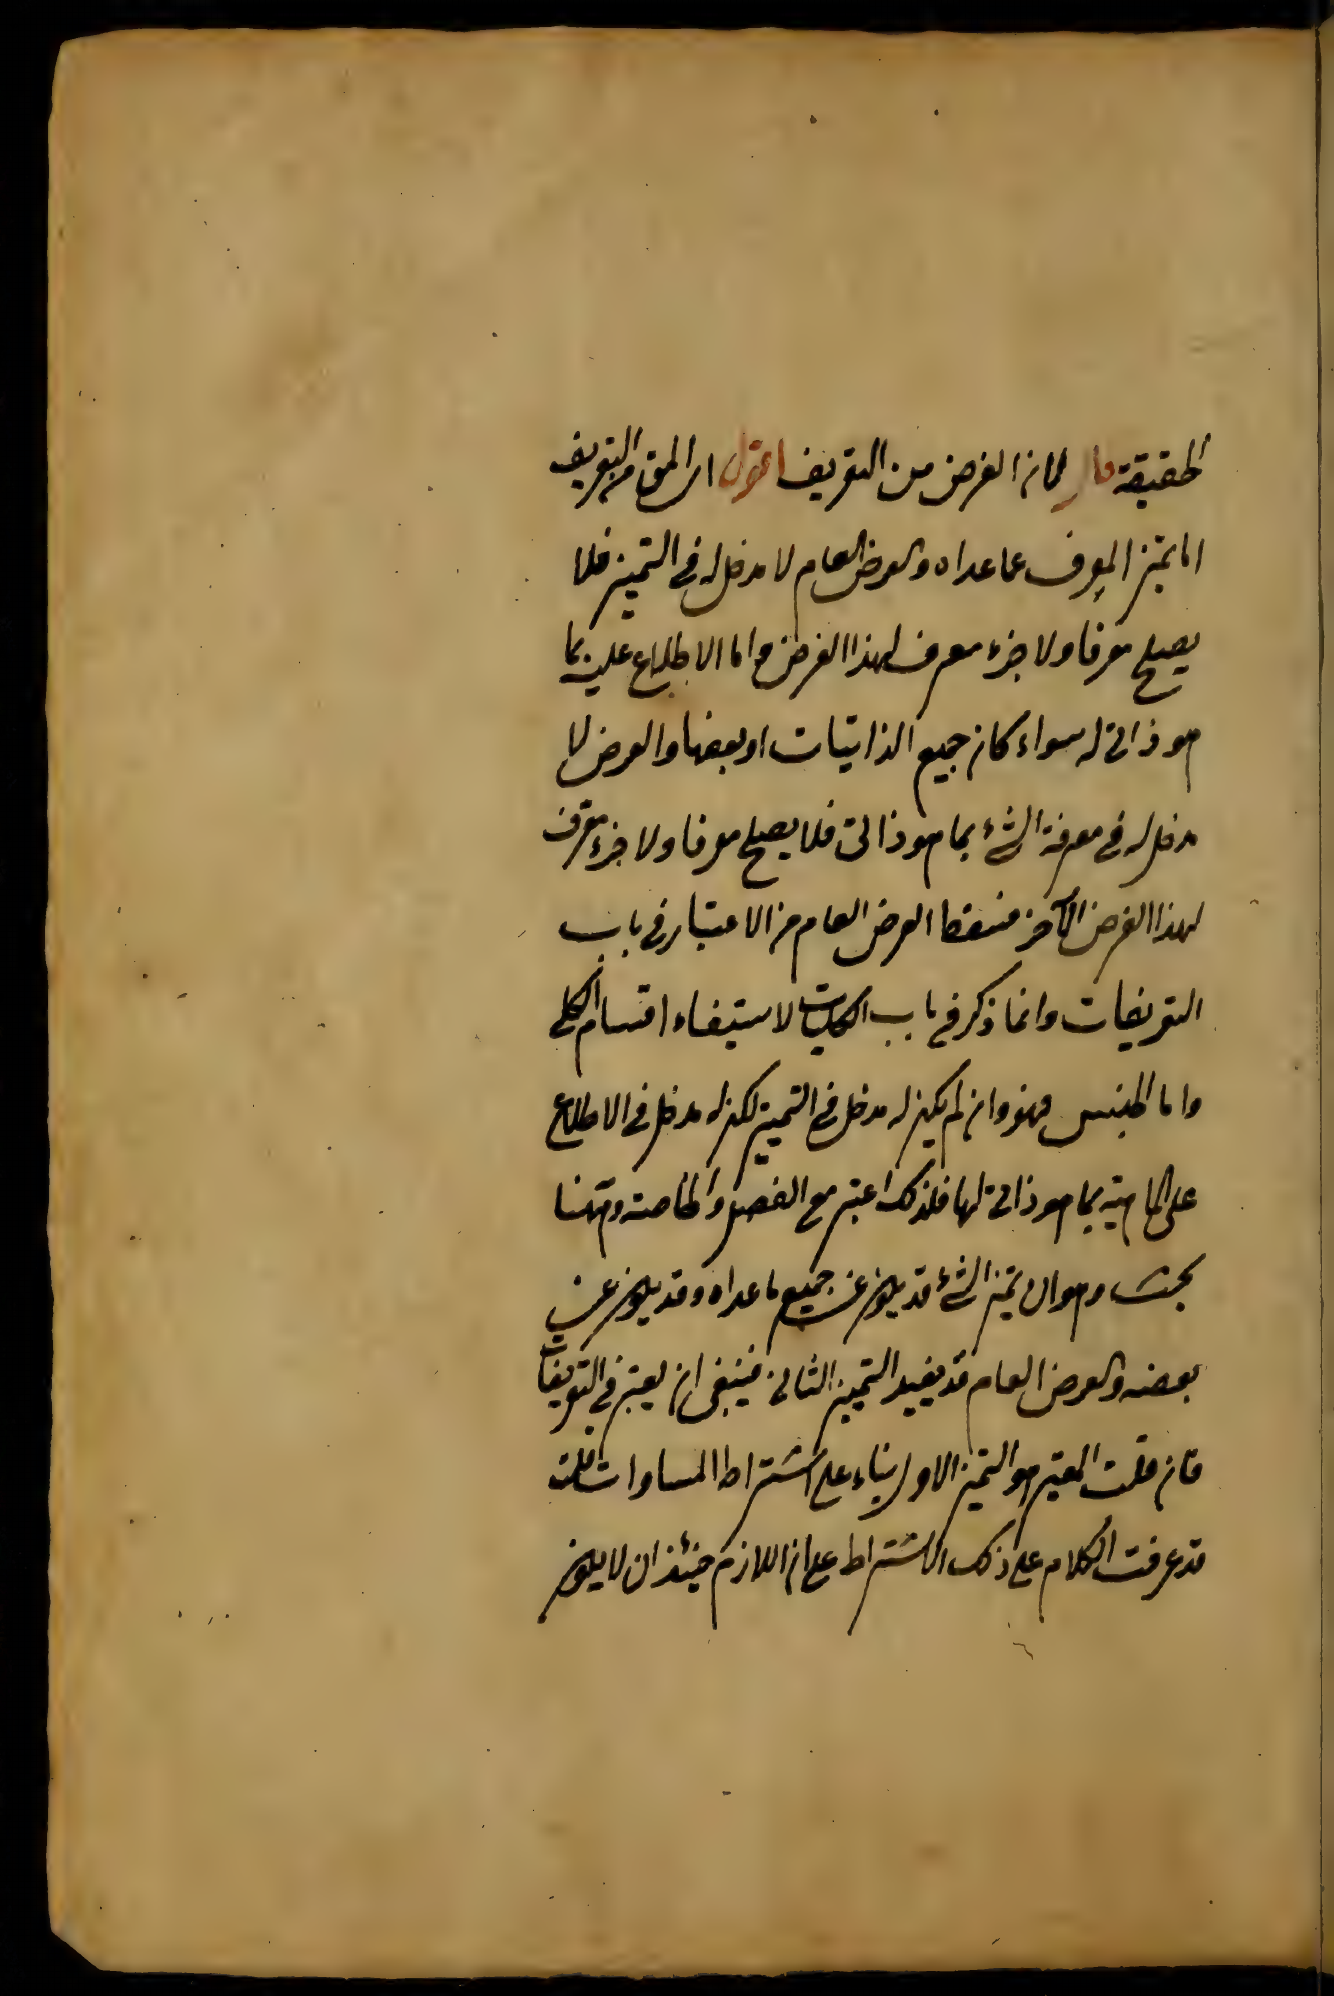 الحقيقة قال لان الغرض من التعريف اقول ان المق من التعريف
اما تميز المعرف عما عداه والعرض العام لا مدخل له فى التميز فلا
يصلح معرفا ولا جزء معرف لهذا الغرض واما الاطلاع عليه بما
هو ذاتى له سواء كان جميع الذاتيات او بعضها والعرض لا
مدخل له فى معرفة الشئ بما هو ذاتى فلا يصلح معرفا ولا جزء معرف
لهذا الغرض الآخر فسقط العرض العام من الاعتبار فى باب
التعريفات وانما ذكر فى باب الكليات لاستيفاء اقسام الكلى
واما الجنس فهو وان لم يكن له مدخل فى التميز لكن له مدخل فى الاطلاع
على الماهية بما هو ذاتى لها فلذلك اعتبر مع الفصل والخاصة وههنا
بحث وهو ان تميز الشئ قد يكون عن جميع ما عداه وقد يكون عن
بعضه والعرض العام قد يفيد التميز الثانى فينبغى ان يعتبر فى التعريفات
فان قلت المعتبر هو التميز الاول بناء على اشتراط المساوات قلت
قد عرفت الكلام على ذلك الاشتراط على ان اللازم حينئذ ان لا يكون